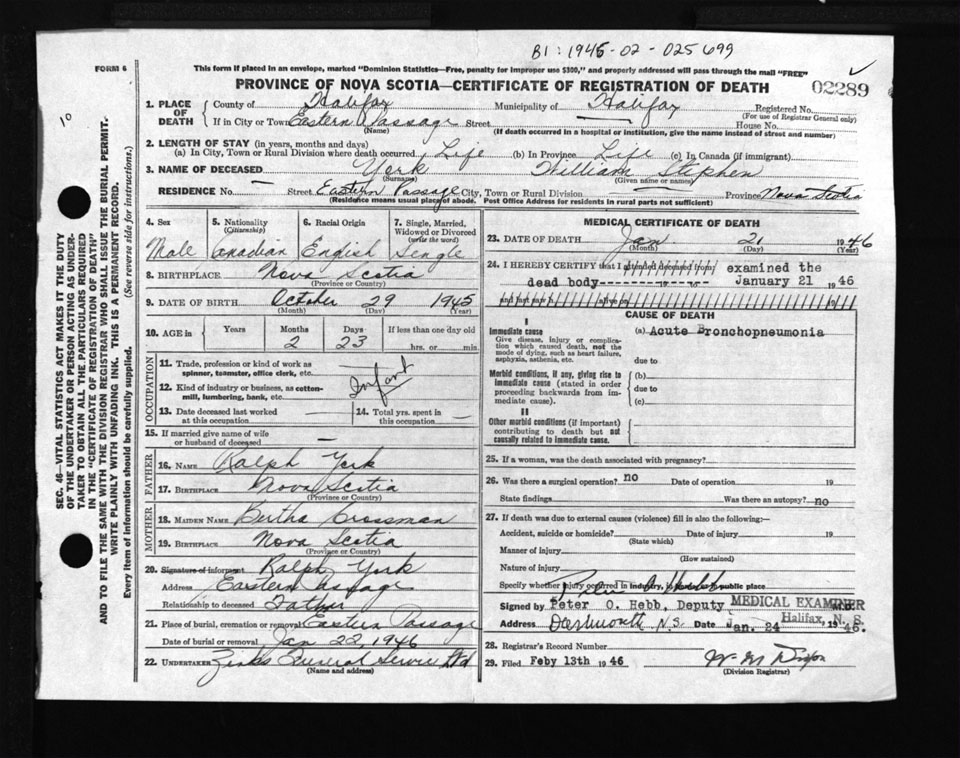 B1: 1945-02-025699
FORM 6
This form if placed in an envelope, marked "Dominion Statistics—Free, penalty for improper use $300," and properly addressed will pass through the mail "FREE"
PROVINCE OF NOVA SCOTIA—CERTIFICATE OF REGISTRATION OF DEATH
02289
10
1. PLACE OF DEATH { County of Halifax Municipality of Halifax Registered No.
(For use of Registrar General only)
If in City or Town Eastern Passage Street House No.
(Name) (If death occurred in a hospital or institution, give the name instead of street and number)
2. LENGTH OF STAY (in years, months and days)
(a) In City, Town or Rural Division where death occurred Life (b) In Province Life (c) In Canada (if immigrant)
3. NAME OF DECEASED York William Stephen
(Surname) (Given name or names)
RESIDENCE No. — Street Eastern Passage City, Town or Rural Division — Province Nova Scotia
(Residence means usual place of abode. Post Office Address for residents in rural parts not sufficient)
4. Sex 5. Nationality (Citizenship) 6. Racial Origin 7. Single, Married, Widowed or Divorced (write the word)
Male Canadian English Single
8. BIRTHPLACE Nova Scotia
(Province or Country)
9. DATE OF BIRTH October 29 1945
(Month) (Day) (Year)
10. AGE in Years Months Days If less than one day old
2 23 hrs. or min.
OCCUPATION
11. Trade, profession or kind of work as spinner, teamster, office clerk, etc.
Infant
12. Kind of industry or business, as cotton-mill, lumbering, bank, etc.
13. Date deceased last worked at this occupation — 14. Total yrs. spent in this occupation —
15. If married give name of wife or husband of deceased —
FATHER
16. NAME Ralph York
17. BIRTHPLACE Nova Scotia
(Province or Country)
MOTHER
18. MAIDEN NAME Bertha Crossman
19. BIRTHPLACE Nova Scotia
(Province or Country)
20. Signature of informant Ralph York
Address Eastern Passage
Relationship to deceased Father
21. Place of burial, cremation or removal Eastern Passage
Date of burial or removal Jan 22, 1946
22. UNDERTAKER Zinks Funeral Service Ltd
(Name and address)
MEDICAL CERTIFICATE OF DEATH
23. DATE OF DEATH Jan 21 1946
(Month) (Day) (Year)
24. I HEREBY CERTIFY that I attended deceased from examined the
dead body 19 19 January 21 1946
and last saw h alive on
CAUSE OF DEATH
I
Immediate cause (a) Acute Bronchopneumonia
Give disease, injury or complication which caused death, not the mode of dying, such as heart failure, asphyxia, asthenia, etc.
due to
Morbid conditions, if any, giving rise to immediate cause (stated in order proceeding backwards from immediate cause).
(b)
due to
(c)
II
Other morbid conditions (if important) contributing to death but not causally related to immediate cause.
25. If a woman, was the death associated with pregnancy?
26. Was there a surgical operation? no Date of operation 19
State findings Was there an autopsy? no
27. If death was due to external causes (violence) fill in also the following:—
Accident, suicide or homicide? Date of injury 19
(State which)
Manner of injury
(How sustained)
Nature of injury
Specify whether injury occurred in industry, in home or in public place
Signed by Peter O. Hebb, Deputy MEDICAL EXAMINER M.D.
Address Dartmouth N.S. Date Jan. 24 Halifax, N. S. 1946.
28. Registrar's Record Number
29. Filed Feby 13th 1946
(Division Registrar)
SEC. 46—VITAL STATISTICS ACT MAKES IT THE DUTY
OF THE UNDERTAKER OR PERSON ACTING AS UNDER-
TAKER TO OBTAIN ALL THE PARTICULARS REQUIRED
IN THE "CERTIFICATE OF REGISTRATION OF DEATH"
AND TO FILE THE SAME WITH THE DIVISION REGISTRAR WHO SHALL ISSUE THE BURIAL PERMIT.
WRITE PLAINLY WITH UNFADING INK. THIS IS A PERMANENT RECORD.
Every item of information should be carefully supplied. (See reverse side for instructions.)